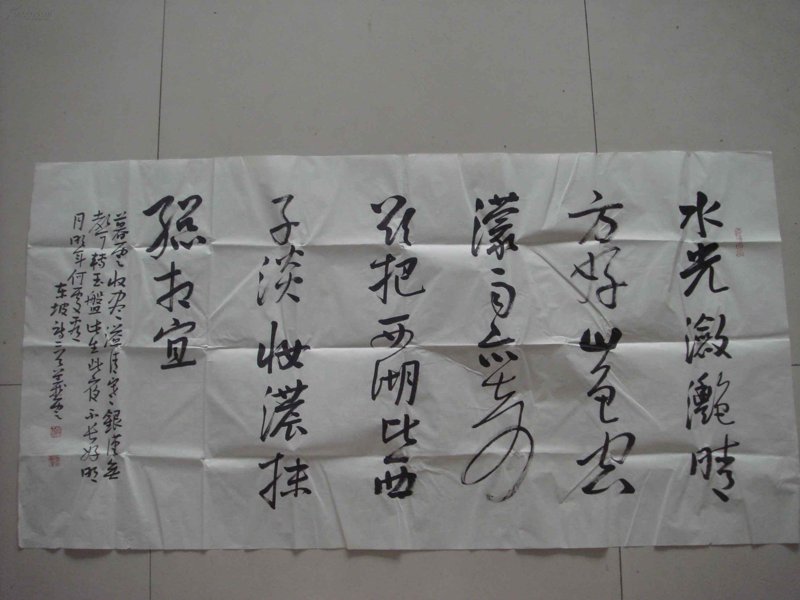 水光瀲灩晴
方好山色空
濛雨亦奇
欲把西湖比西
子淡妝濃抹
總相宜
暮雲收盡溢清寒銀漢無
聲轉玉盤此生此夜不長好明
月明年何處看
东坡詩二首